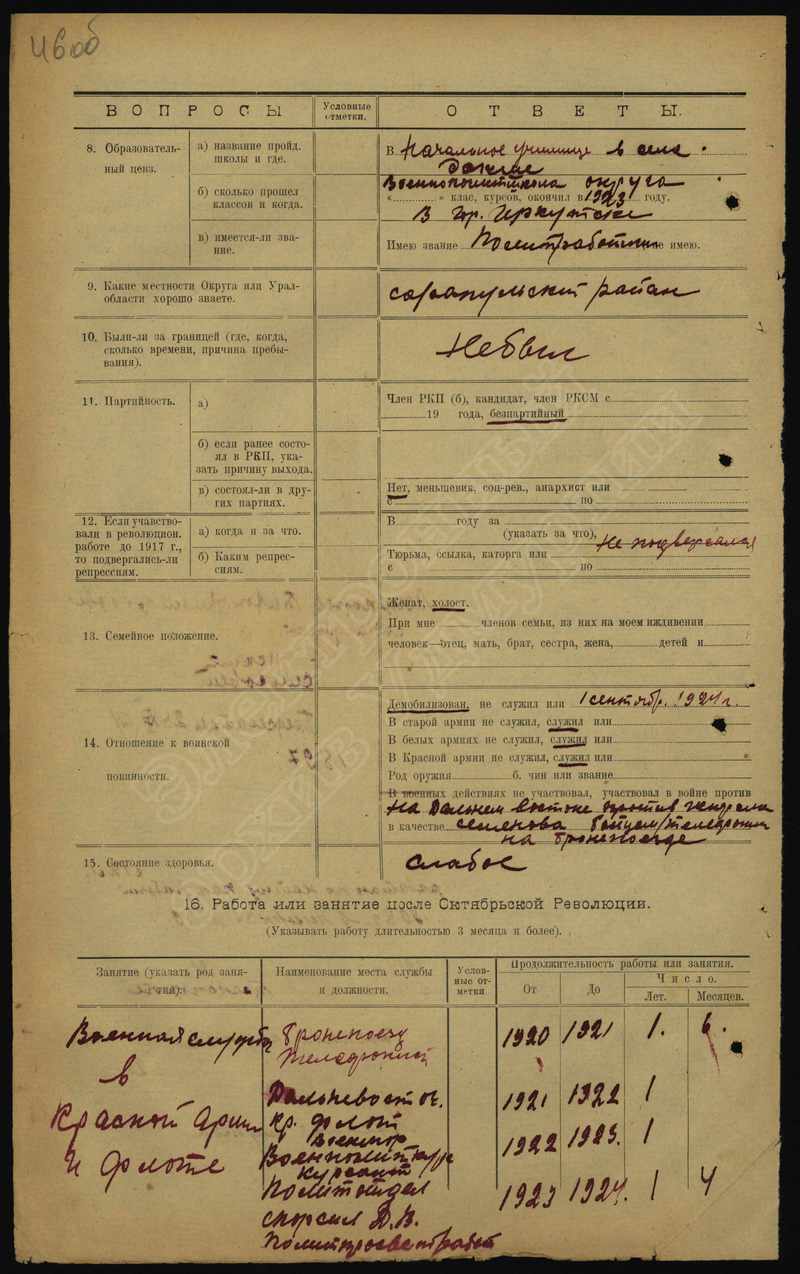 46об
ВОПРОСЫ
Условные отметки.
ОТВЕТЫ.
8. Образователь-
ный ценз.
а) название пройд.
школы и где.
В Начальное училище в селе
б) сколько прошел
классов и когда.
Военнополитшкола округа
«..............» клас, курсов, окончил в 1923 году.
В гор. Иркутске
в) имеется-ли зва-
ние.
Имею звание Политработника не имею.
9. Какие местности Округа или Урал-
области хорошо знаете.
Сарапульский район
10. Были-ли за границей (где, когда,
сколько времени, причина пребы-
вания).
Небыл
11. Партийность.
а)
Член РКП (б), кандидат, член РКСМ с
19 года, безпартийный
б) если ранее состо-
ял в РКП, ука-
зать причину выхода.
в) состоял-ли в дру-
гих партиях.
Нет, меньшевик, соц-рев., анархист или
с по
12. Если учавство-
вали в революцион.
работе до 1917 г.,
то подвергались-ли
репрессиям.
а) когда и за что.
В году за
(указать за что),
не подвергался
б) Каким репрес-
сиям.
Тюрьма, ссылка, каторга или
с по
13. Семейное положение.
Женат, холост.
При мне членов семьи, из них на моем иждивении
человек—отец, мать, брат, сестра, жена, детей и
14. Отношение к воинской
повинности.
Демобилизован, не служил или 1 сентябр. 1924 г.
В старой армии не служил, служил или
В белых армиях не служил, служил или
В Красной армии не служил, служил или
Род оружия б. чин или звание
В военных действиях не участвовал, участвовал в войне против
На Дальнем Востоке против генерала
в качестве Семенова бойцем/телефонист
на бронепоезде
15. Состояние здоровья.
слабое
16. Работа или занятие после Октябрьской Революции.
(Указывать работу длительностью 3 месяца и более).
Занятие (указать род заня-
тий).
Наименование места службы
и должности.
Услов-
ные от-
метки
Продолжительность работы или занятия.
От
До
Число.
Лет.
Месяцев.
Военная служба
бронепоезд
1920 1921 1. 6.
телефонист
в
Дальневост.
1921 1922 1
Красной армии
Кр. флот
военмор
1922 1923. 1
и флоте
курсант
Политотдел
1923 1924. 1 4
Д.В.
Политпросветработ